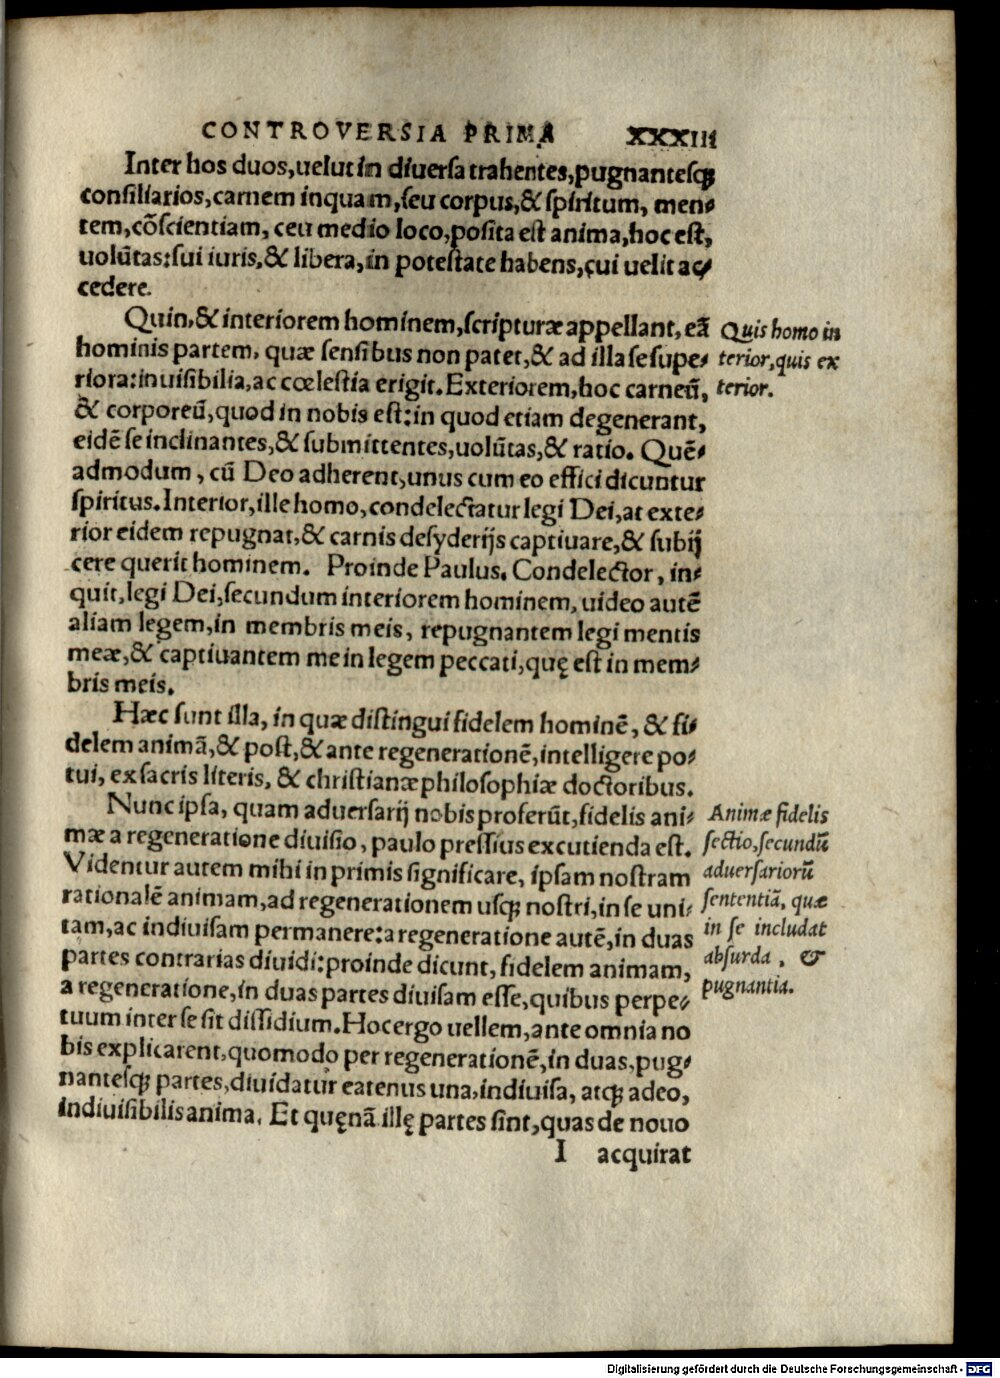 CONTROVERSIA PRIMA XXXIII
Inter hos duos,uelut in diuersa trahentes,pugnantesq́;
consiliarios,carnem inquam,seu corpus,& spiritum, men-
tem,cōscientiam, ceu medio loco,posita est anima,hoc est,
uolūtas:sui iuris,& libera,in potestate habens,cui uelit ac-
cedere.
Quin,& interiorem hominem,scripturæ appellant, eā
hominis partem, quæ sensibus non patet,& ad illa se supe-
riora:inuisibilia,ac cœlestia erigit.Exteriorem,hoc carneū,
& corporeū,quod in nobis est:in quod etiam degenerant,
eidē se inclinantes,& submittentes,uolūtas,& ratio. Quē-
admodum, cū Deo adherent,unus cum eo effici dicuntur
spiritus.Interior,ille homo,condelectatur legi Dei,at exte-
rior eidem repugnat,& carnis desyderijs captiuare,& subij
cere querit hominem. Proinde Paulus. Condelector, in-
quit,legi Dei,secundum interiorem hominem, uideo autē
aliam legem,in membris meis, repugnantem legi mentis
meæ,& captiuantem me in legem peccati,quę est in mem-
bris meis.
Hæc sunt illa, in quæ distingui fidelem hominē, & fi-
delem animā,& post,& ante regenerationē,intelligere po-
tui, ex sacris literis, & christianæ philosophiæ doctoribus.
Nunc ipsa, quam aduersarij nobis proferūt,fidelis ani-
mæ a regeneratione diuisio, paulo pressius excutienda est.
Videntur autem mihi in primis significare, ipsam nostram
rationalē animam,ad regenerationem usq; nostri,in se uni-
tam,ac indiuisam permanere:a regeneratione autē,in duas
partes contrarias diuidi:proinde dicunt, fidelem animam,
a regeneratione,in duas partes diuisam esse,quibus perpe-
tuum inter se sit dissidium.Hoc ergo uellem,ante omnia no
bis explicarent,quomodo per regenerationē,in duas,pug-
nantesq; partes,diuidatur eatenus una,indiuisa, atq; adeo,
indiuisibilis anima. Et quęnā illę partes sint,quas de nouo
I acquirat
Quis homo in
terior,quis ex
terior.
Animæ fidelis
sectio,secundū
aduersariorū
sententiā, quæ
in se includat
absurda, &
pugnantia.
Digitalisierung gefördert durch die Deutsche Forschungsgemeinschaft - DFG